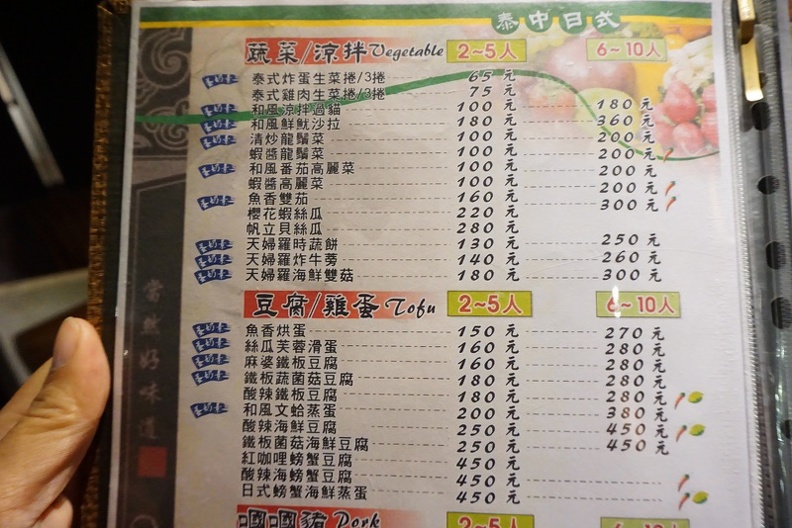 泰中日式
蔬菜/涼拌 Vegetable 2~5人 6~10人
泰式炸蛋生菜捲/3捲 65元
泰式雞肉生菜捲/3捲 75元
和風涼拌過貓 100元 180元
和風鮮魷沙拉 180元 360元
清炒龍鬚菜 100元 200元
蝦醬龍鬚菜 100元 200元
和風番茄高麗菜 100元 200元
蝦醬高麗菜 100元 200元
魚香雙茄 160元 300元
櫻花蝦絲瓜 220元
帆立貝絲瓜 280元
天婦羅時蔬餅 130元 250元
天婦羅炸牛蒡 140元 260元
天婦羅海鮮雙菇 180元 300元
豆腐/雞蛋 Tofu 2~5人 6~10人
魚香烘蛋 150元 270元
絲瓜芙蓉滑蛋 160元 280元
麻婆鐵板豆腐 160元 280元
鐵板蔬菌菇豆腐 180元 280元
酸辣鐵板豆腐 180元 280元
和風文蛤蒸蛋 200元 380元
酸辣海鮮豆腐 250元 450元
鐵板菌菇海鮮豆腐 250元 450元
紅咖哩螃蟹豆腐 450元
酸辣海螃蟹豆腐 450元
日式螃蟹海鮮蒸蛋 450元
豬 Pork 2~5人 6~10人
當然好味道